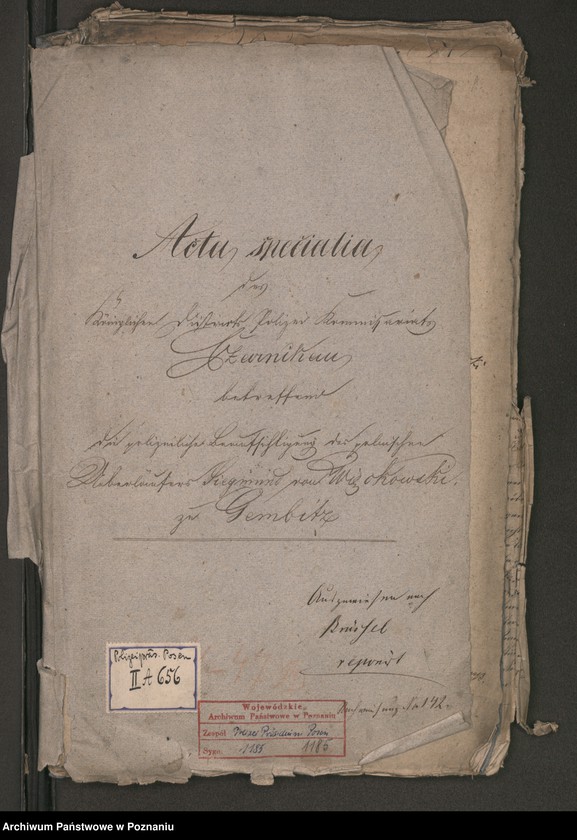 Acta specialia
des
Königlichen District Polizei Kommissariats
Czarnikau
betreffend
die polizeiliche Beaufsichtigung des polnischen
Ueberläufers Siegmund von Wysokowski
zu Gembitz
Ausgewiesen nach
Brüssel
Polizeipräs. Posen
II A 656
Wojewódzkie
Archiwum Państwowe w Poznaniu
Zespół
Sygn. 1185 1185
Archiwum Państwowe w Poznaniu